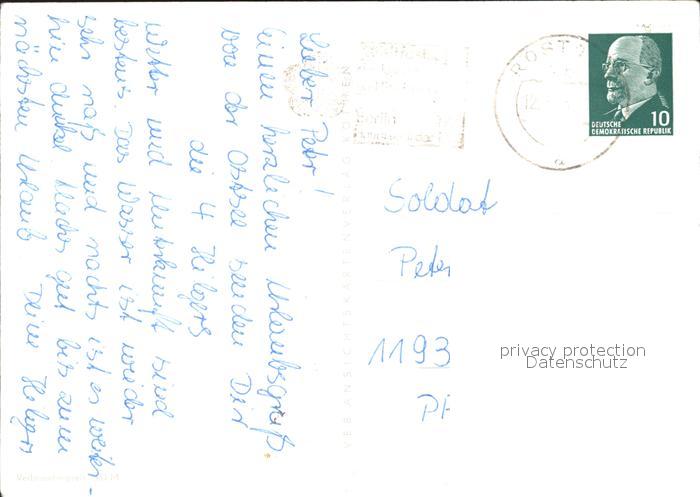 Lieber Peter!
Einen herzlichen Urlaubsgruß
von der Ostsee senden Dir
die 4 Hilgers
Wetter und Unterkunft sind
bestens. Das Wasser ist wieder
sehr naß und nachts ist es weiter-
hin dunkel. Machs gut bis zum
nächsten Urlaub Deine Hilgers
VEB ANSICHTSKARTENVERLAG
ROST
Berlin
DEUTSCHE
DEMOKRATISCHE REPUBLIK
10
Soldat
Peter
1193
PF
privacy protection
Datenschutz